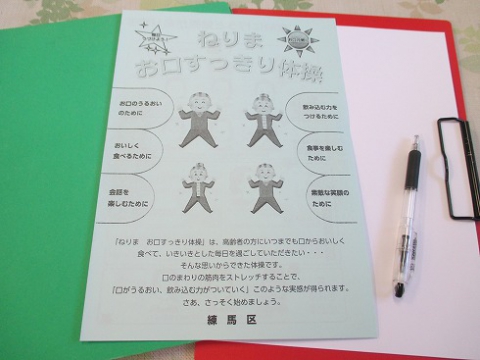 ねりま
お口すっきり体操
お口のうるおい
のために
飲み込む力を
つけるために
おいしく
食べるために
食事を楽しむ
ために
会話を
楽しむために
素敵な笑顔の
ために
「ねりま お口すっきり体操」は、高齢者の方にいつまでも口からおいしく
食べて、いきいきとした毎日を過ごしていただきたい・・・
そんな思いからできた体操です。
口のまわりの筋肉をストレッチすることで、
「口がうるおい、飲み込む力がついていく」このような実感が得られます。
さあ、さっそく始めましょう。
練馬区